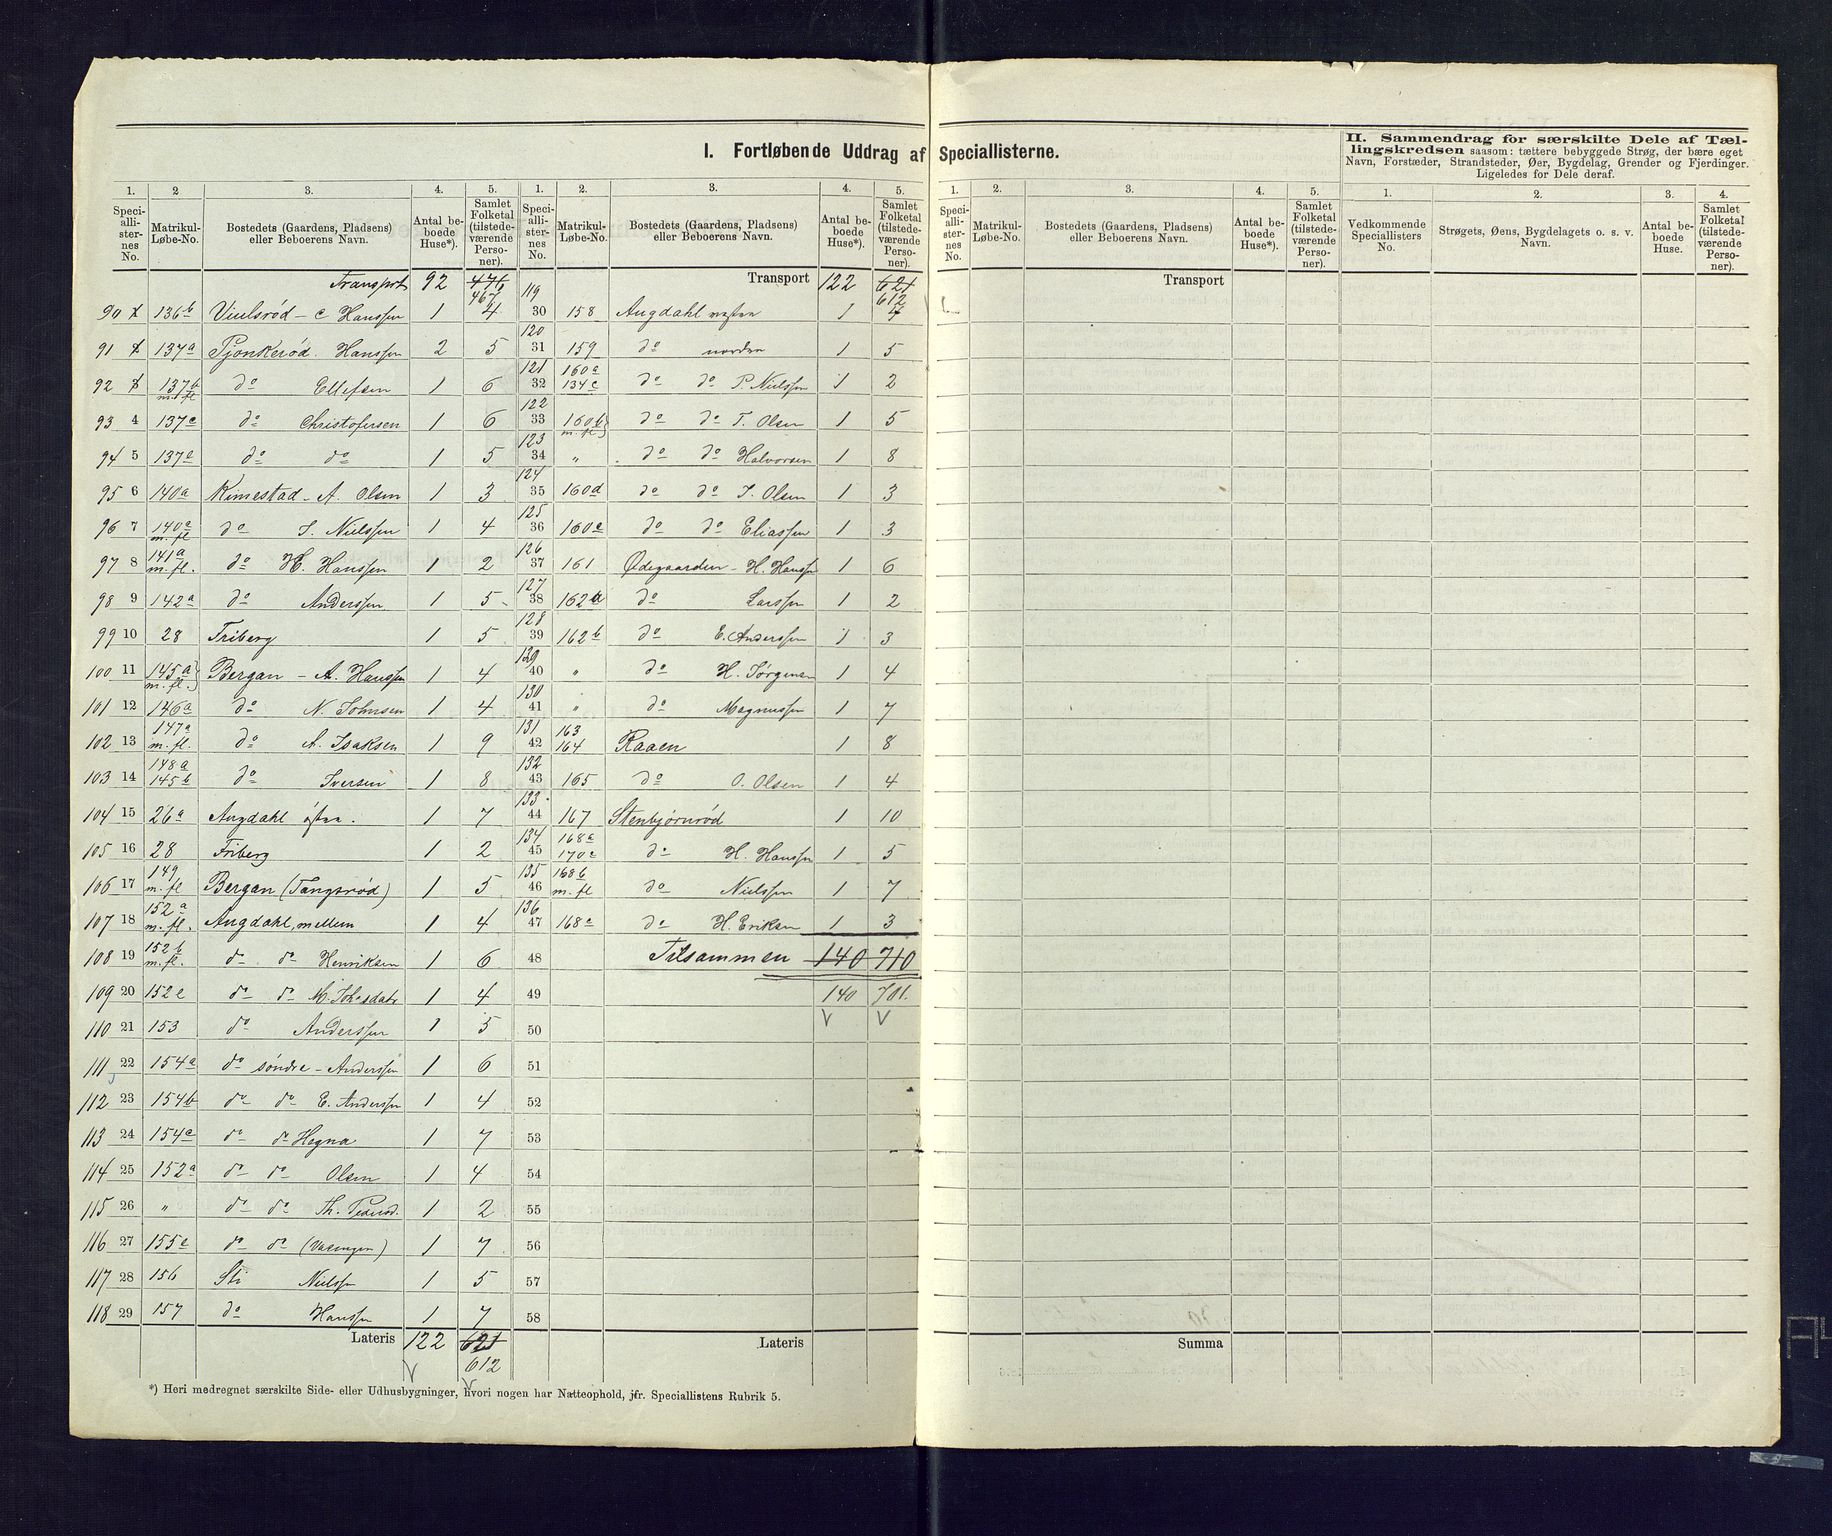 I. Fortløbende Uddrag af Speciallisterne.
II. Sammendrag for særskilte Dele af Tæl-
lingskredsen saasom: tættere bebyggede Strøg, der bære eget
Navn, Forstæder, Strandsteder, Øer, Bygdelag, Grender og Fjerdinger.
Ligeledes for Dele deraf.
1. 2 3. 4. 5.
Speciallisternes No. Matrikul-Løbe-No. Bostedets (Gaardens, Pladsens) eller Beboerens Navn. Antal beboede Huse*). Samlet Folketal (tilstedeværende Personer).
Transport 92 476 467
90 136b Viulsrød - C Hanssen 1 4
91 137a Pjonkerød. Hanssen 2 5
92 137b m. fl do Ellefsen 1 6
93 4 137c do Christofersen 1 6
94 5 137e do do 1 5
95 6 140a Kimestad - A. Olsen 1 3
96 7 140c m. fl do I. Nielssen 1 4
97 8 141a m. fl. do H. Hanssen 1 2
98 9 142a do Anderssen 1 5
99 10 28 Friberg 1 5
100 11 145a m. fl. Bergan - A. Hanssen 1 4
101 12 146a do N. Johnsen 1 4
102 13 147a m. fl. do A. Isaksen 1 9
103 14 148a 145b do Iversen 1 8
104 15 26a Augdahl østre. 1 7
105 16 28 Friberg 1 2
106 17 149 m. fl Bergan (Tangsrød) 1 5
107 18 152a m. fl. Augdahl, mellem 1 4
108 19 152b m. fl. do do Henriksen 1 6
109 20 152c do do M. Johsdatr 1 4
110 21 153 do Anderssen 1 5
111 22 154a do søndre - Anderssen 1 6
112 23 154b do do E. Anderssen 1 4
113 24 154c do do Hegna 1 7
114 25 152a do do Olsen 1 4
115 26 " do do Th. 1 2
116 27 155c do do 1 7
117 28 156 Sti Nielssen 1 5
118 29 157 do Hanssen 1 7
Lateris 122 621
612
*) Heri medregnet særskilte Side- eller Udhusbygninger, hvori nogen har Natteophold, jfr. Speciallistens Rubrik 5.
1. 2. 3. 4. 5.
Speciallisternes No. Matrikul-Løbe-No. Bostedets (Gaardens, Pladsens) eller Beboerens Navn. Antal beboede Huse*). Samlet Folketal (tilstedeværende Personer).
Transport 122 621 612
119 30 158 Augdahl vestre 1 4
120 31 159 do nordre 1 5
121 32 160a 134c do do P Nielssen 1 2
122 33 160b m. fl do do T. Olsen 1 5
123 34 " do do Halvorsen 1 8
124 35 160d do do I. Olsen 1 3
125 36 160e do do Eliassen 1 3
126 37 161 Ødegaarden - H. Hanssen 1 6
127 38 162a do Larssen 1 2
128 39 162b do E. Anderssen 1 3
129 40 " do H. Jørgensen 1 4
130 41 " do Magnussen 1 7
131 42 163 164 Raaen 1 8
132 43 165 do O. Olsen 1 4
133 44 167 Stenbjørnrød 1 10
134 45 168a 170c do H. Hanssen 1 5
135 46 168b m. fl do Nielssen 1 7
136 47 168c do H. Eriksen 1 3
48 Tilsammen 140 710
49 140 701.
50
51
52
53
54
55
56
57
58
Lateris
1. 2. 3. 4. 5.
Speciallisternes No. Matrikul-Løbe-No. Bostedets (Gaardens, Pladsens) eller Beboerens Navn. Antal beboede Huse*). Samlet Folketal (tilstedeværende Personer).
Transport
Summa
1. 2. 3. 4.
Vedkommende Speciallisters No. Strøgets, Øens, Bygdelagets o. s. v. Navn. Antal beboede Huse. Samlet Folketal (tilstedeværende Personer).